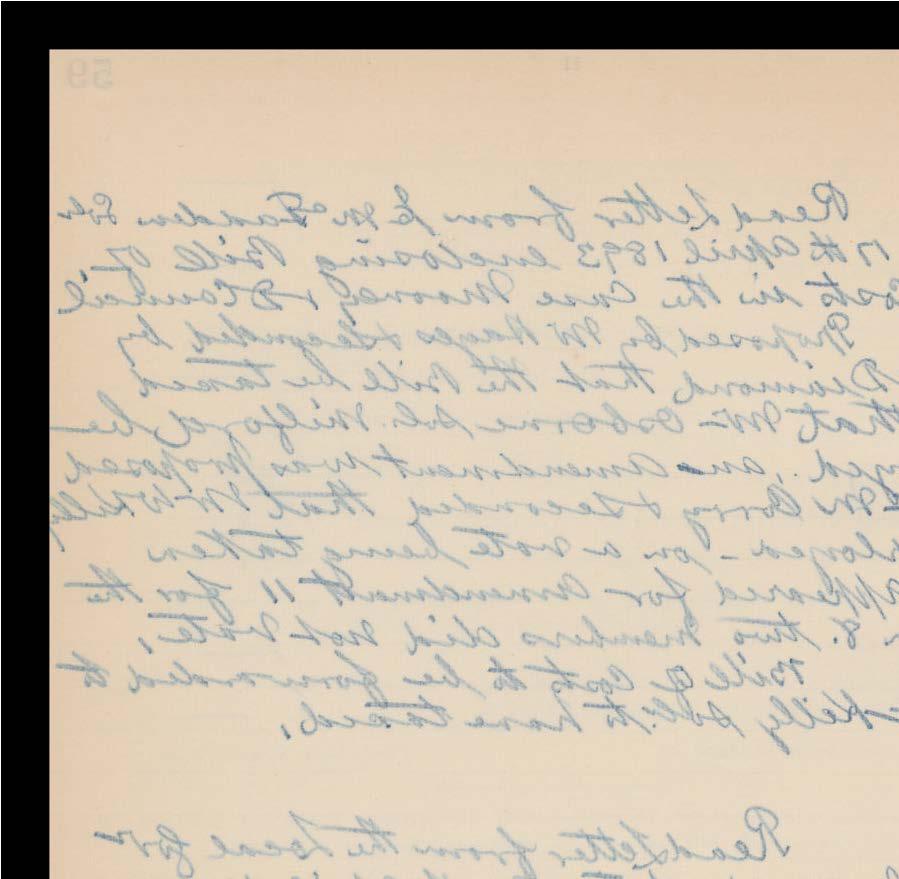 59
Read Letter from
17th April 1893 enclosing Bill of
Costs in the Case Mooney v
Proposed by Mr Hayes & Seconded by
Diamond that the Bill be taxed
that Mr Osborne Sol. Milford be
an amendment was proposed
& seconded that Mr
on a vote being taken
appeared for amendment 11 for the
8. two members did not vote,
Bill of Costs to be forwarded to
Kelly Sol. to have taxed.
Read Letter from the Local